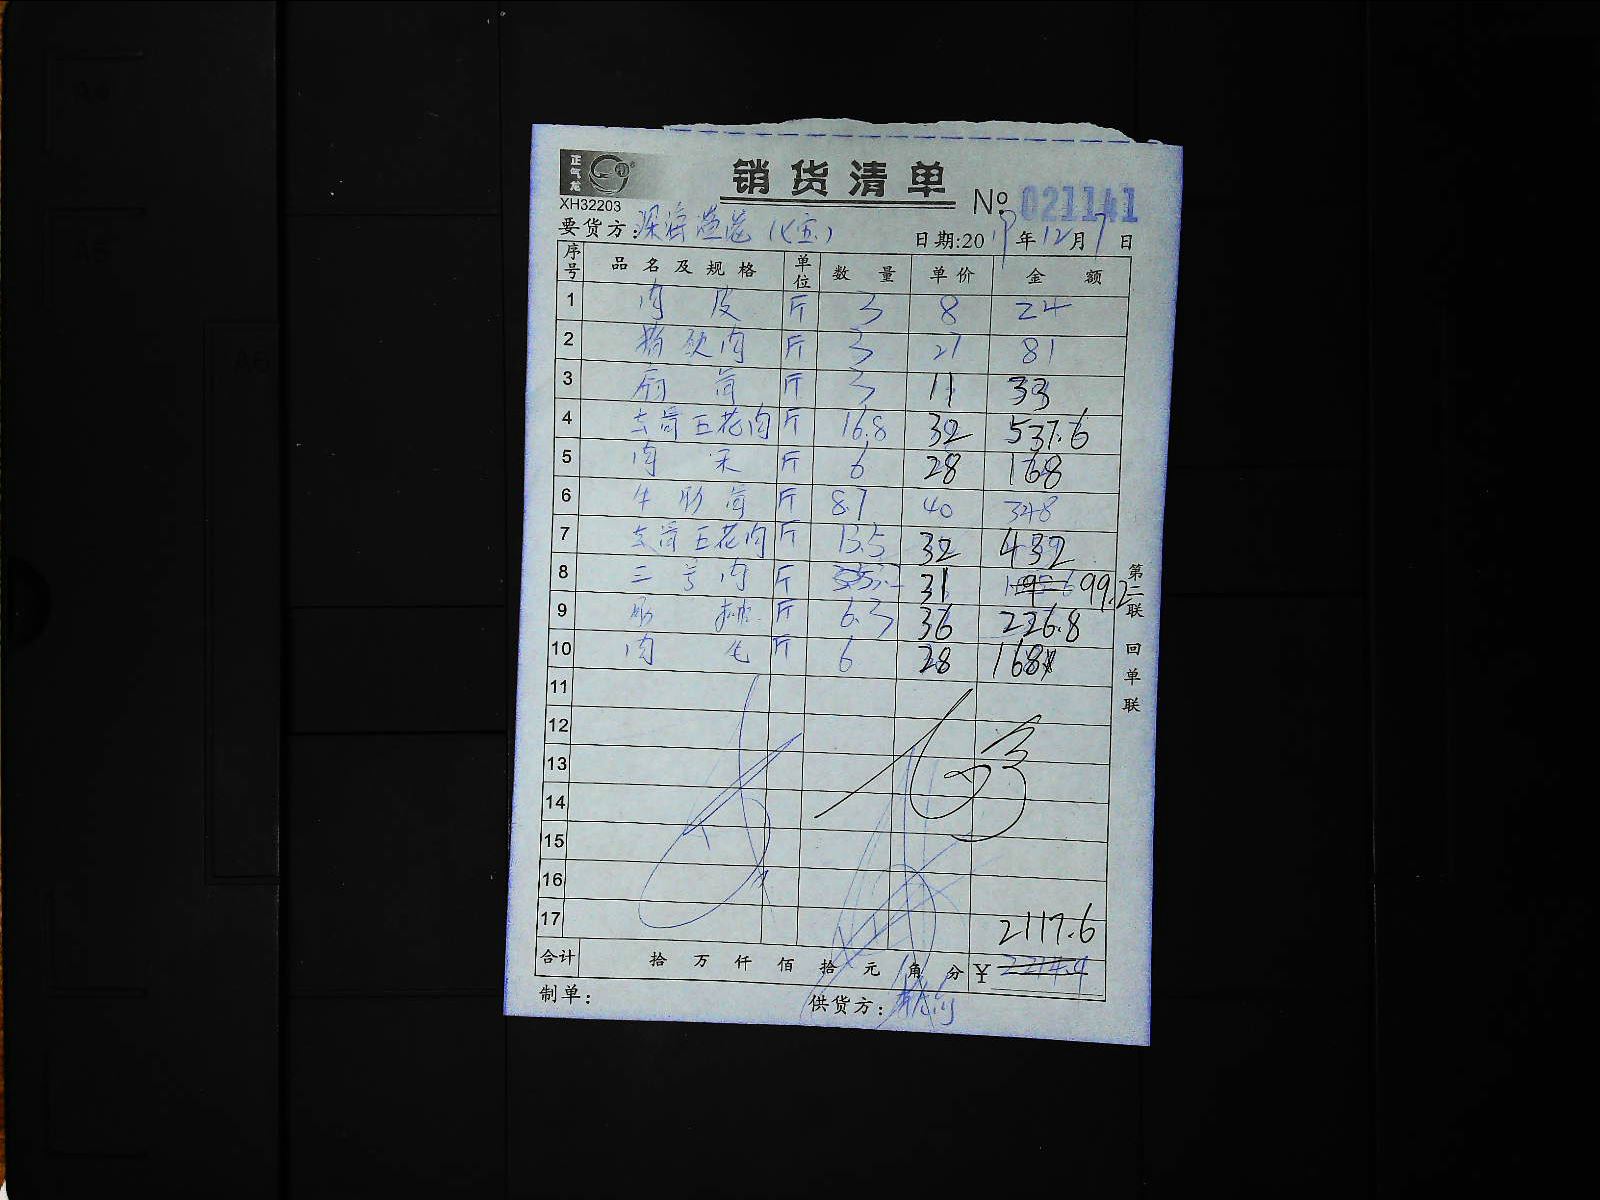 正气龙
XH32203
销货清单
№ 021141
要货方:
日期:20 19 年 12 月 7 日
序号 品名及规格 单位 数量 单价 金额
1 肉皮 斤 3 8 24
2 猪颈肉 斤 3 27 81
3 扇骨 斤 3 11 33
4 去骨五花肉 斤 16.8 32 537.6
5 肉 斤 6 28 168
6 牛肋骨 斤 8.7 40 348
7 去骨五花肉 斤 13.5 32 432
8 三号肉 斤 31 99.2
9 斤 6.3 36 226.8
10 肉 斤 6 28 168
11
12
13
14
15
16
17 2117.6
合计 拾 万 仟 佰 拾 元 角 分 ¥ 2214.4
制单: 供货方:
第二联 回单联